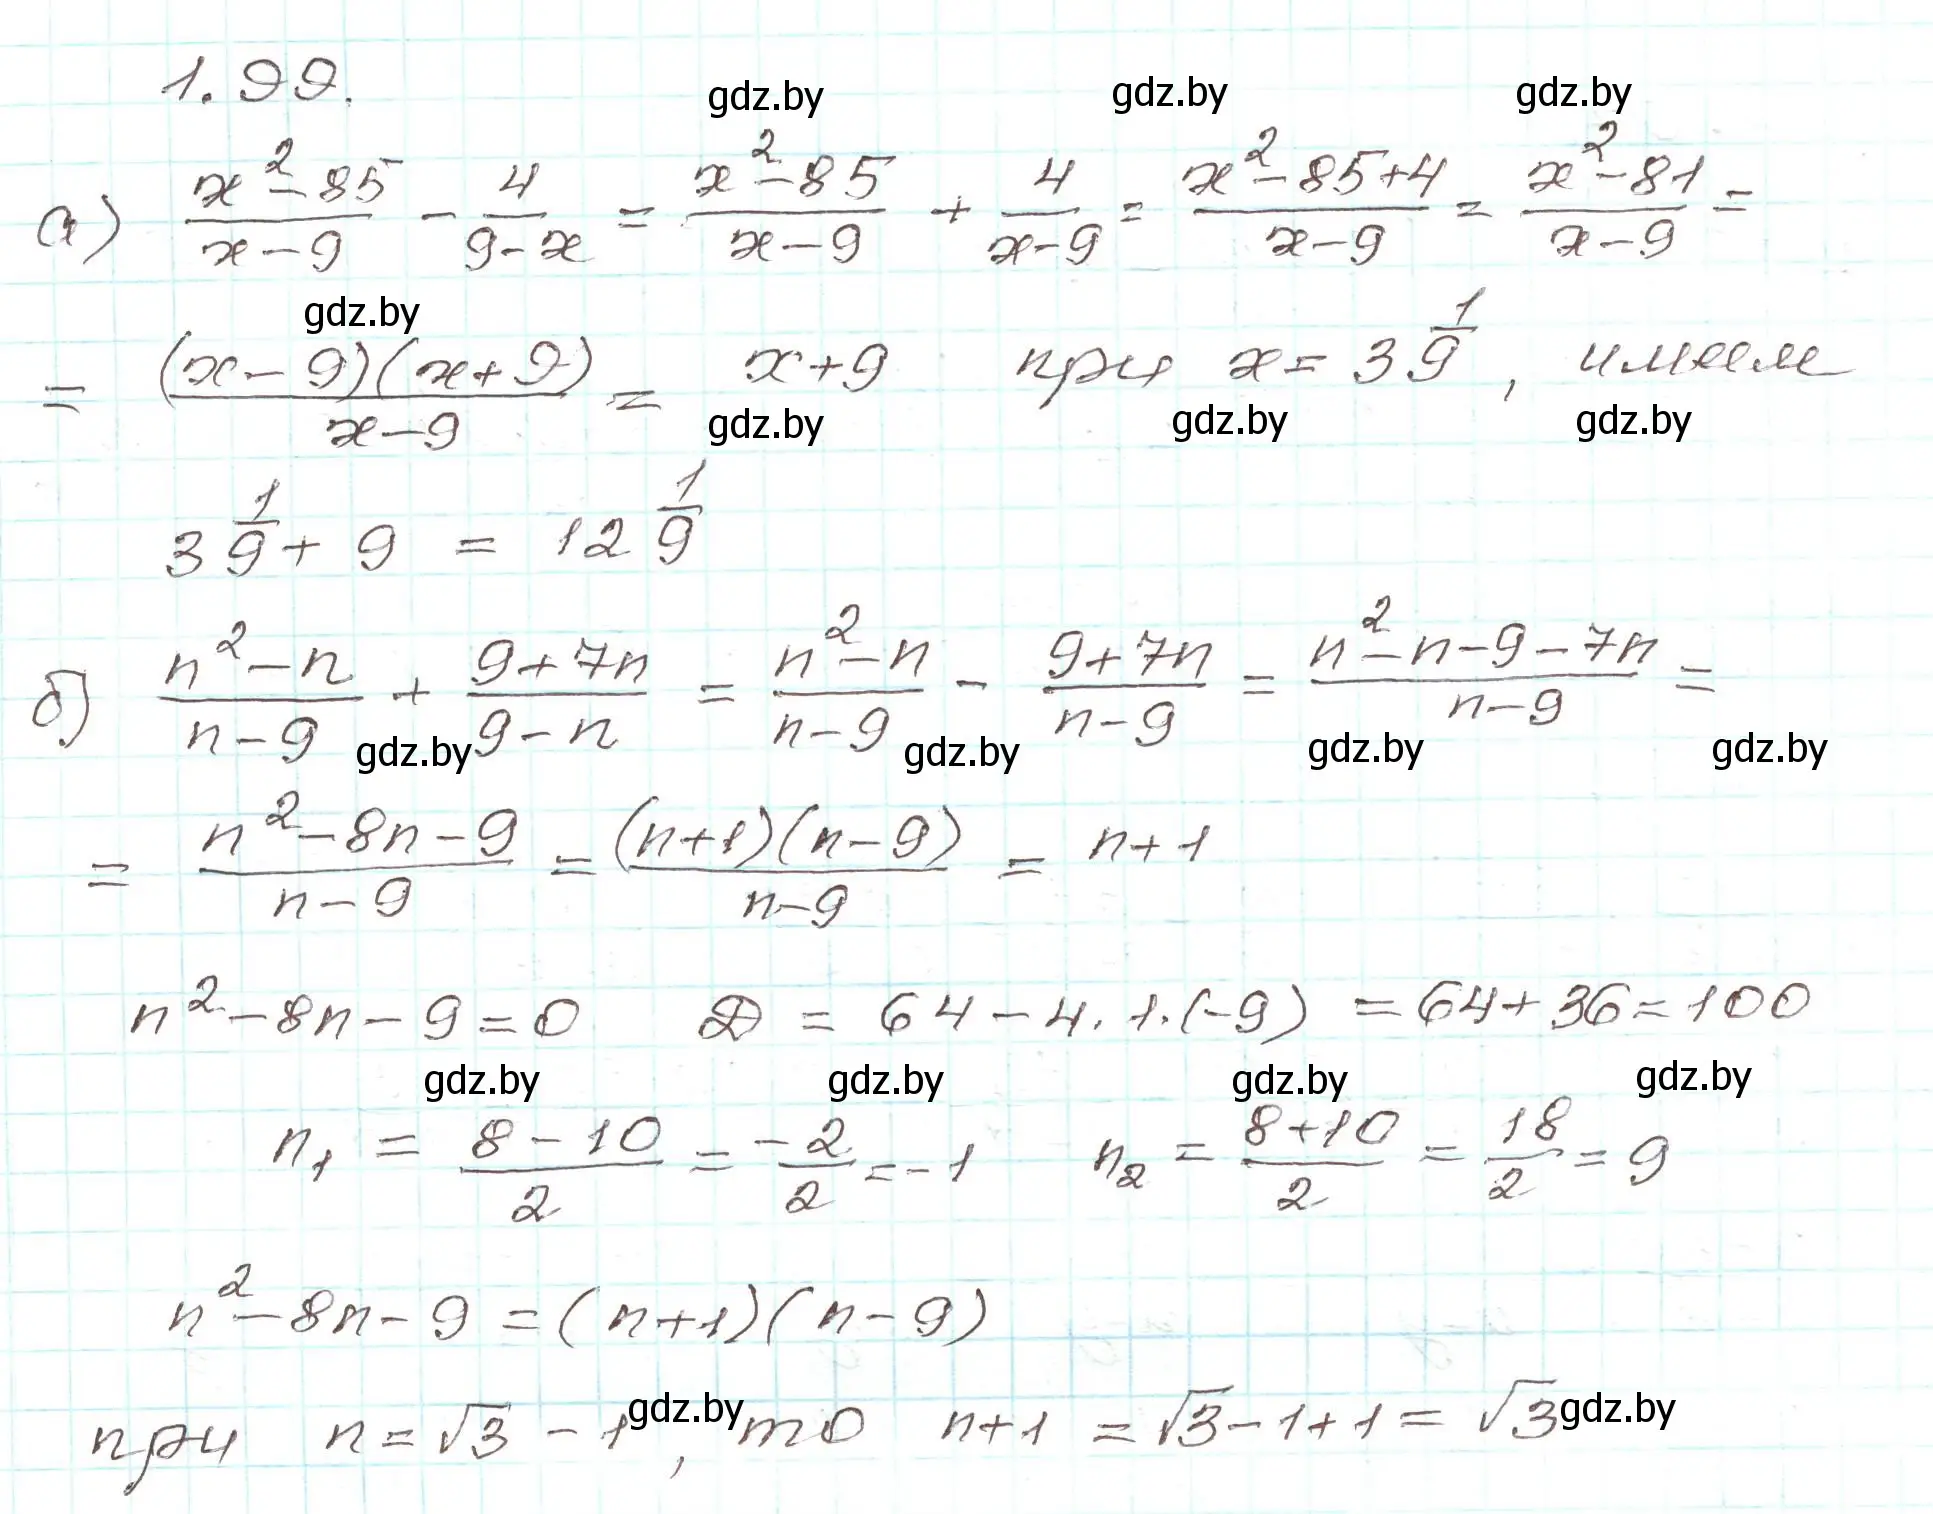 1.99.
gdz.by gdz.by gdz.by
а) (x² - 85)/(x - 9) - 4/(9 - x) = (x² - 85)/(x - 9) + 4/(x - 9) = (x² - 85 + 4)/(x - 9) = (x² - 81)/(x - 9) =
gdz.by
= ((x - 9)(x + 9))/(x - 9) = x + 9 при x = 3 1/9, имеем
gdz.by gdz.by gdz.by
3 1/9 + 9 = 12 1/9
б) (n² - n)/(n - 9) + (9 + 7n)/(9 - n) = (n² - n)/(n - 9) - (9 + 7n)/(n - 9) = (n² - n - 9 - 7n)/(n - 9) =
gdz.by gdz.by gdz.by gdz.by
= (n² - 8n - 9)/(n - 9) = ((n + 1)(n - 9))/(n - 9) = n + 1
n² - 8n - 9 = 0 D = 64 - 4 · 1 · (-9) = 64 + 36 = 100
gdz.by gdz.by gdz.by gdz.by
n₁ = (8 - 10)/2 = -2/2 = -1 n₂ = (8 + 10)/2 = 18/2 = 9
n² - 8n - 9 = (n + 1)(n - 9)
при n = √3 - 1, то n + 1 = √3 - 1 + 1 = √3
gdz.by gdz.by